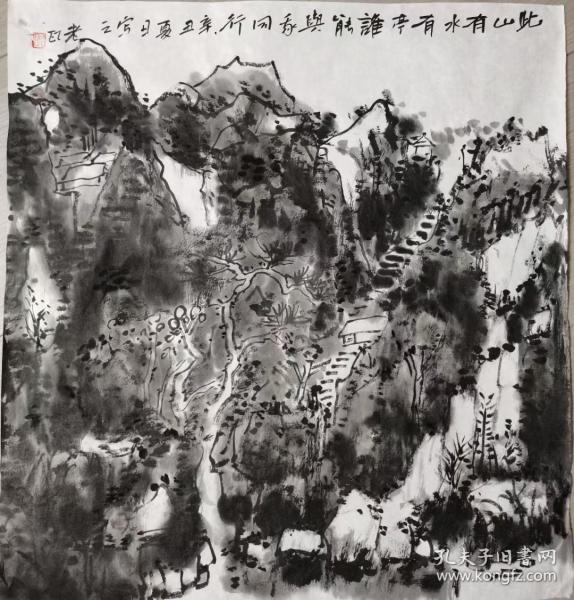 此山有水有亭誰能與我同行辛丑夏日寫之老瓦
孔夫子旧書网
www.kongfz.com